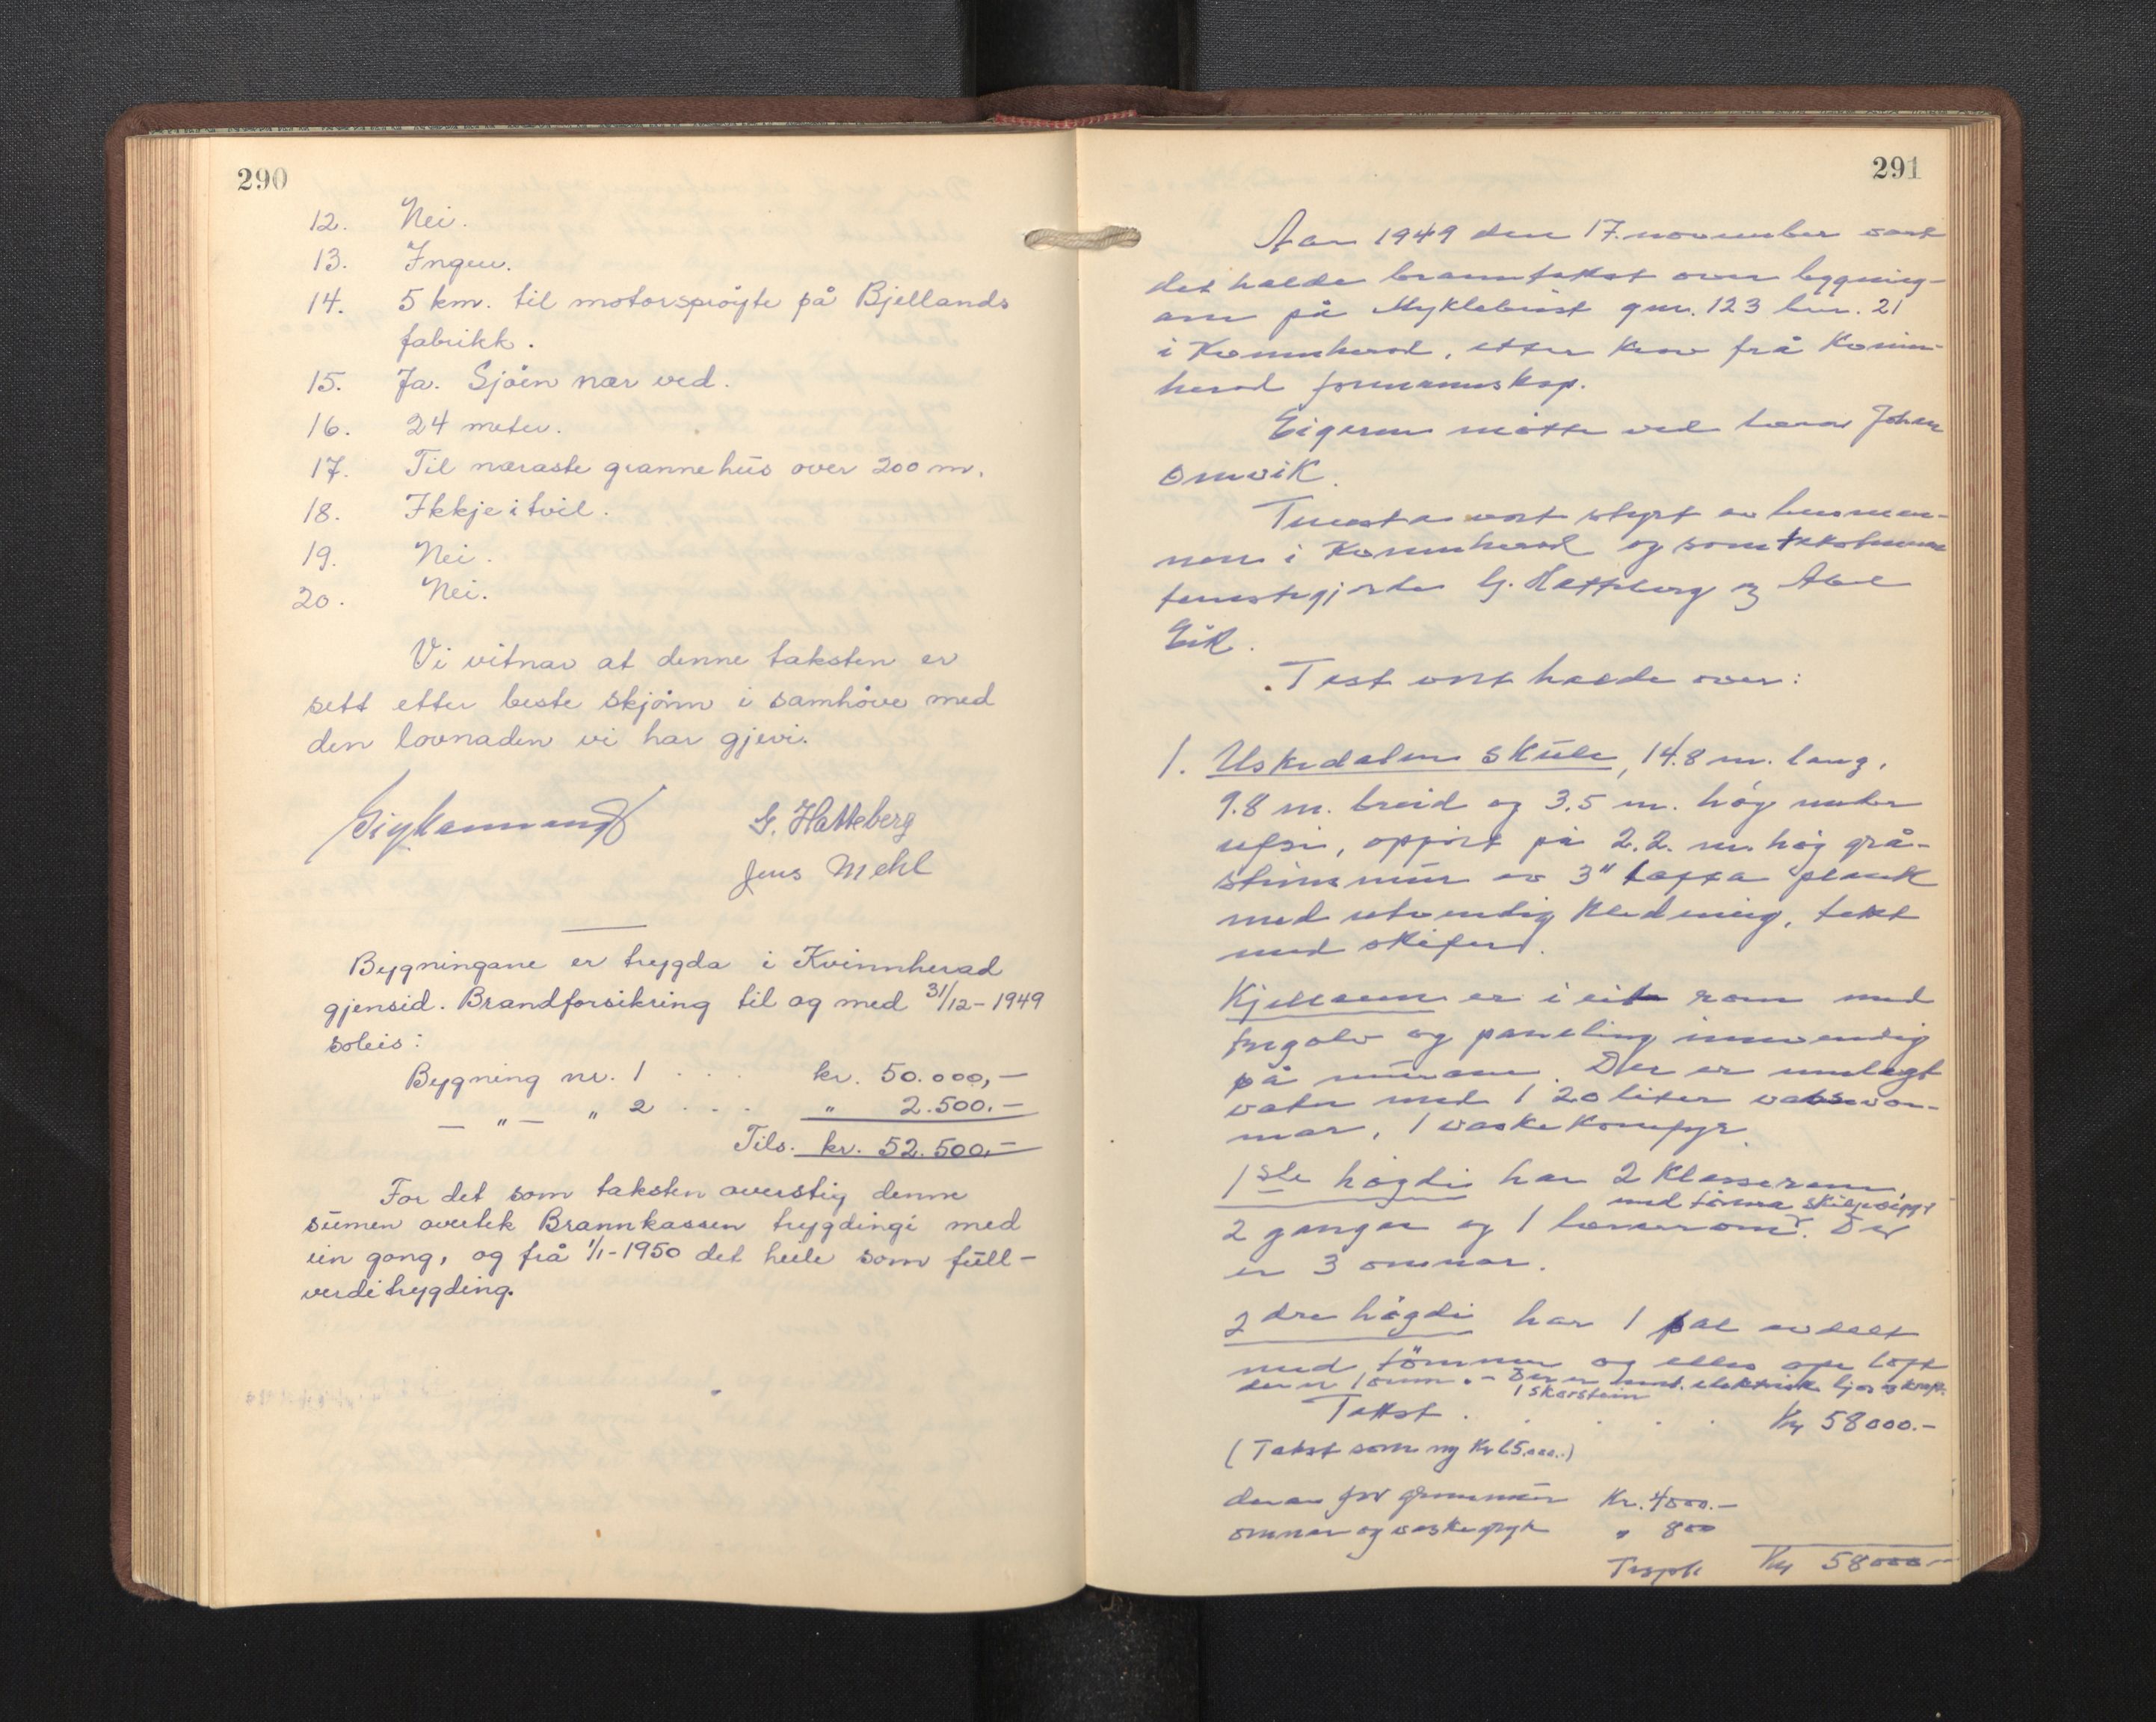 290
12. Nei.
13. Ingen.
14. 5 km. til motorsprøyte på Bjellands
fabrikk.
15. Ja. Sjøen nær ved.
16. 24 meter.
17. Til næraste grannehus over 200 m.
18. Ikkje i tvil.
19. Nei.
20. Nei.
Vi vitnar at denne taksten er
sett etter beste skjønn i samhøve med
den lovnaden vi har gjevi.
G. Hatteberg
Jens Mehl
Bygningane er trygda i Kvinnherad
gjensid. Brandforsikring til og med 31/12-1949
soleis:
Bygning nr. 1 . . . kr. 50.000,-
— " — " 2 . . . " 2.500.-
Tils. kr. 52.500,-
For det som taksten overstig denne
sumen overtek Brannkassen trygdingi med
ein gong, og frå 1/1-1950 det heile som full-
verditrygding.
291
Aar 1949 den 17. november vart
det halde branntakst over bygning-
ane på Myklebust gnr. 123 bnr. 21
i Kvinnherad, etter krav frå Kvinn-
herad formannskap.
Eigaren møtte ved lærar Johan
Omvik.
Tenesta vart styrt av lensman-
nen i Kvinnherad og som takstmenn
tenestegjorde G. Hatteberg og Abel
Eik.
Takst vart halde over:
1. Uskedalen skule, 14.8 m. lang,
9.8 m. breid og 3.5 m. høg under
ufsi, oppført på 2.2. m. høg grå-
steinsmur av 3" tappa plank
med utvendig kledning, tekt
med skifer.
Kjellaren er i eit rom med
tregolv og paneling innvendig
på murane. Der er innlagt
vatn med 1 20 liter vassvar-
mar, 1 vaskekomfyr.
1ste høgdi har 2 klasserom
med tømra skilevegg
2 gangar og 1 lærarrom. Der
er 3 omnar.
2dre høgdi har 1 sal avdelt
med tømmer og elles ope loft
der er 1 omn. - Der er innl. elektrisk ljos og kraft.
1 skorstein
Takst . . . . . Kr 58000.-
(Takst som ny Kr 65.000.-)
derav for grunnmur Kr. 4000.-
omnar og vaskegryte " 800
Kr 58000.-